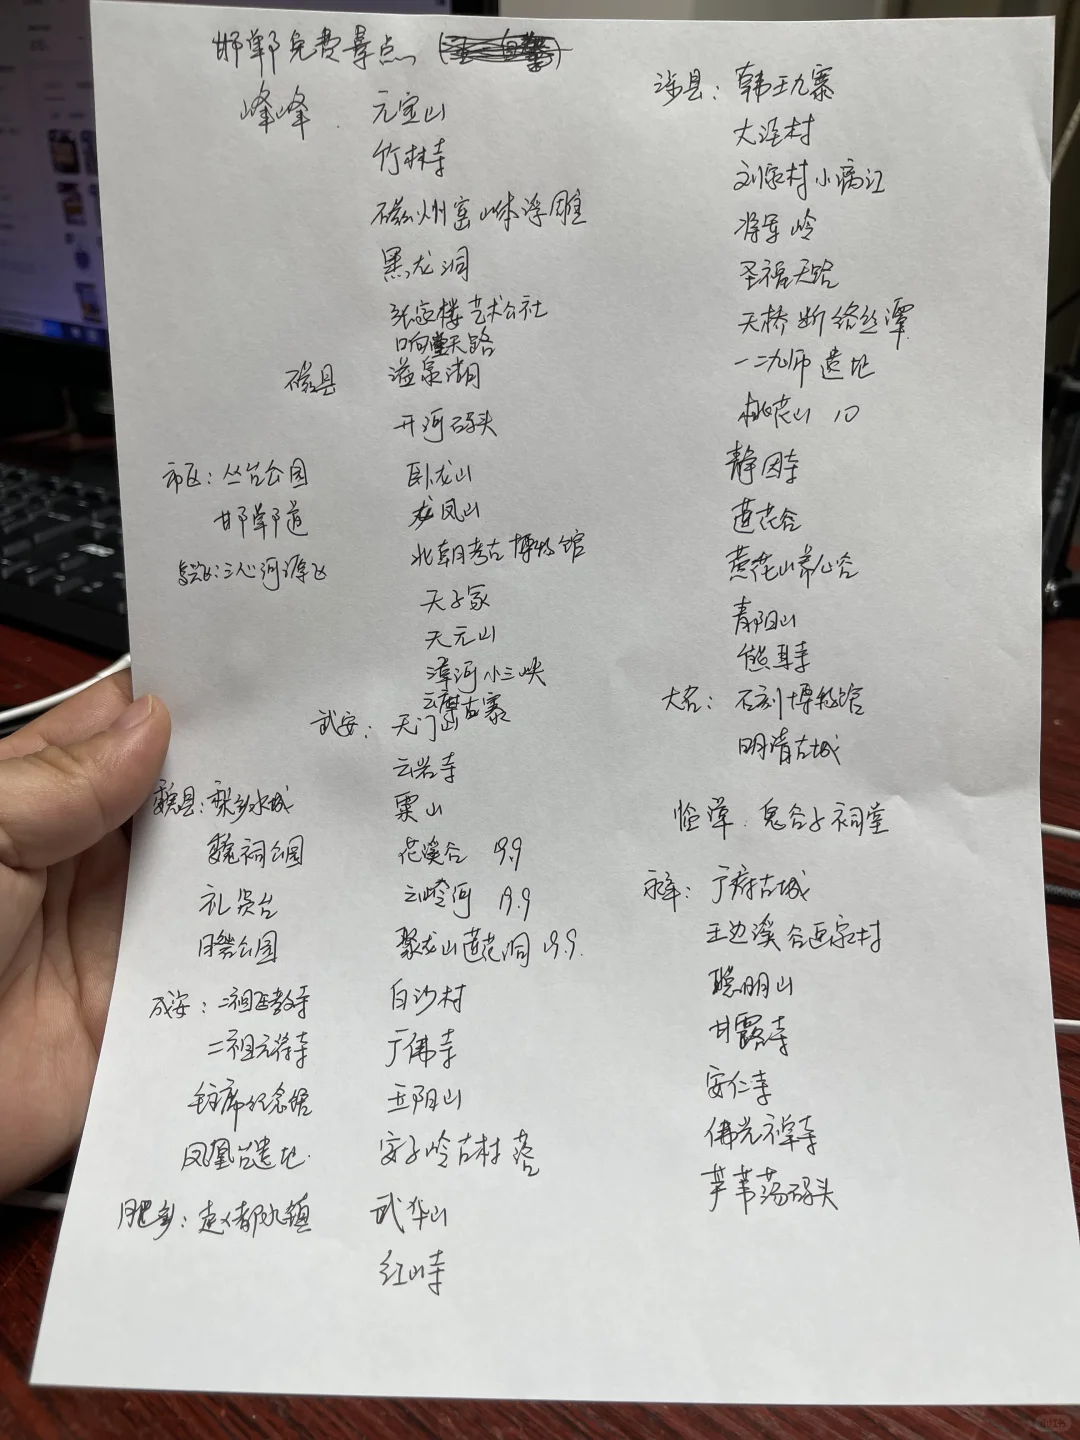 邯郸免费景点
峰峰 元宝山
竹林寺
磁州窑山体浮雕
黑龙洞
张家楼艺术公社
响堂天路
磁县 溢泉湖
开河码头
卧龙山
龙凤山
北朝考古博物馆
天子冢
天元山
漳河小三峡
云摩古寨
市区：丛台公园
邯郸道
复兴区：三心河源
武安：天门山
云岩寺
粟山
花溪谷 19.9
云崆河 19.9
聚龙山莲花洞 19.9
白沙村
广佛寺
五阳山
安子岭古村落
武华山
红山寺
魏县：梨乡水城
魏祠公园
礼贤台
日馨公园
成安：二祖匹教寺
二祖元符寺
毛主席纪念馆
凤凰台遗址
肥乡：赵都水镇
涉县：韩王九寨
大洼村
刘家村小漓江
将军岭
圣福天路
天桥断络丝潭
一二九师遗址
桃花山 10
静因寺
莲花谷
黄花山养心谷
青阳山
熊耳寺
大名：石刻博物馆
明清古城
临漳 鬼谷子祠堂
永年：广府古城
王边溪谷画家村
聪明山
甘露寺
安仁寺
佛光禅寺
芦苇荡码头